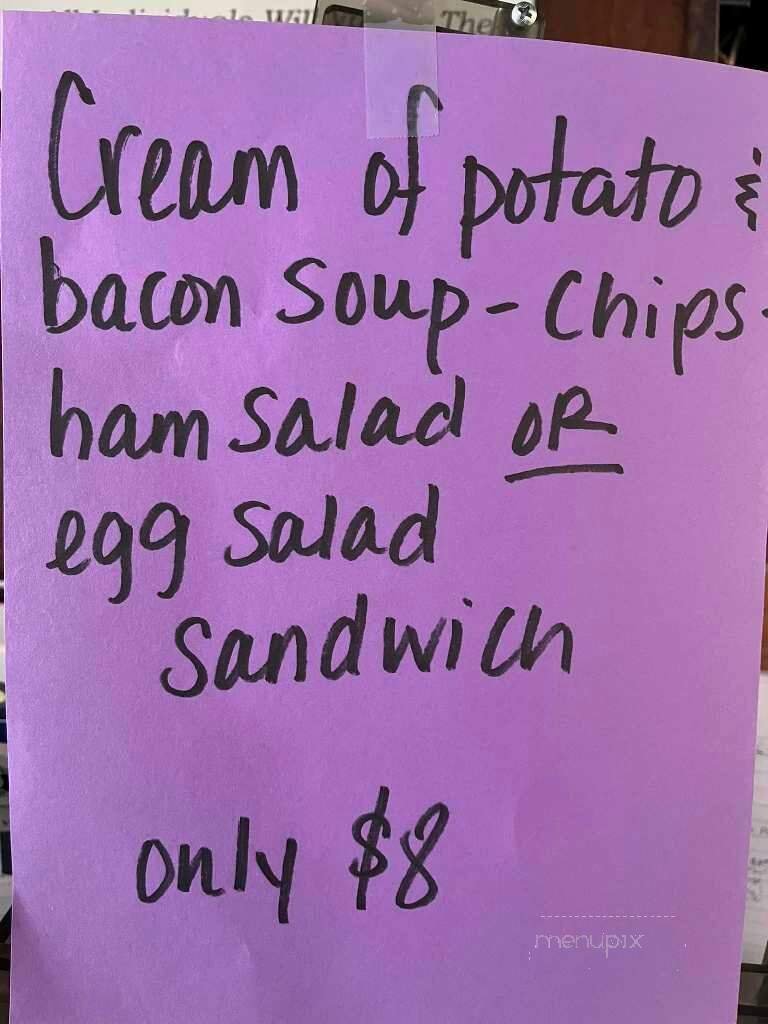 The
Cream of potato &
bacon soup - Chips -
ham salad OR
egg salad
sandwich
only $8
menupix